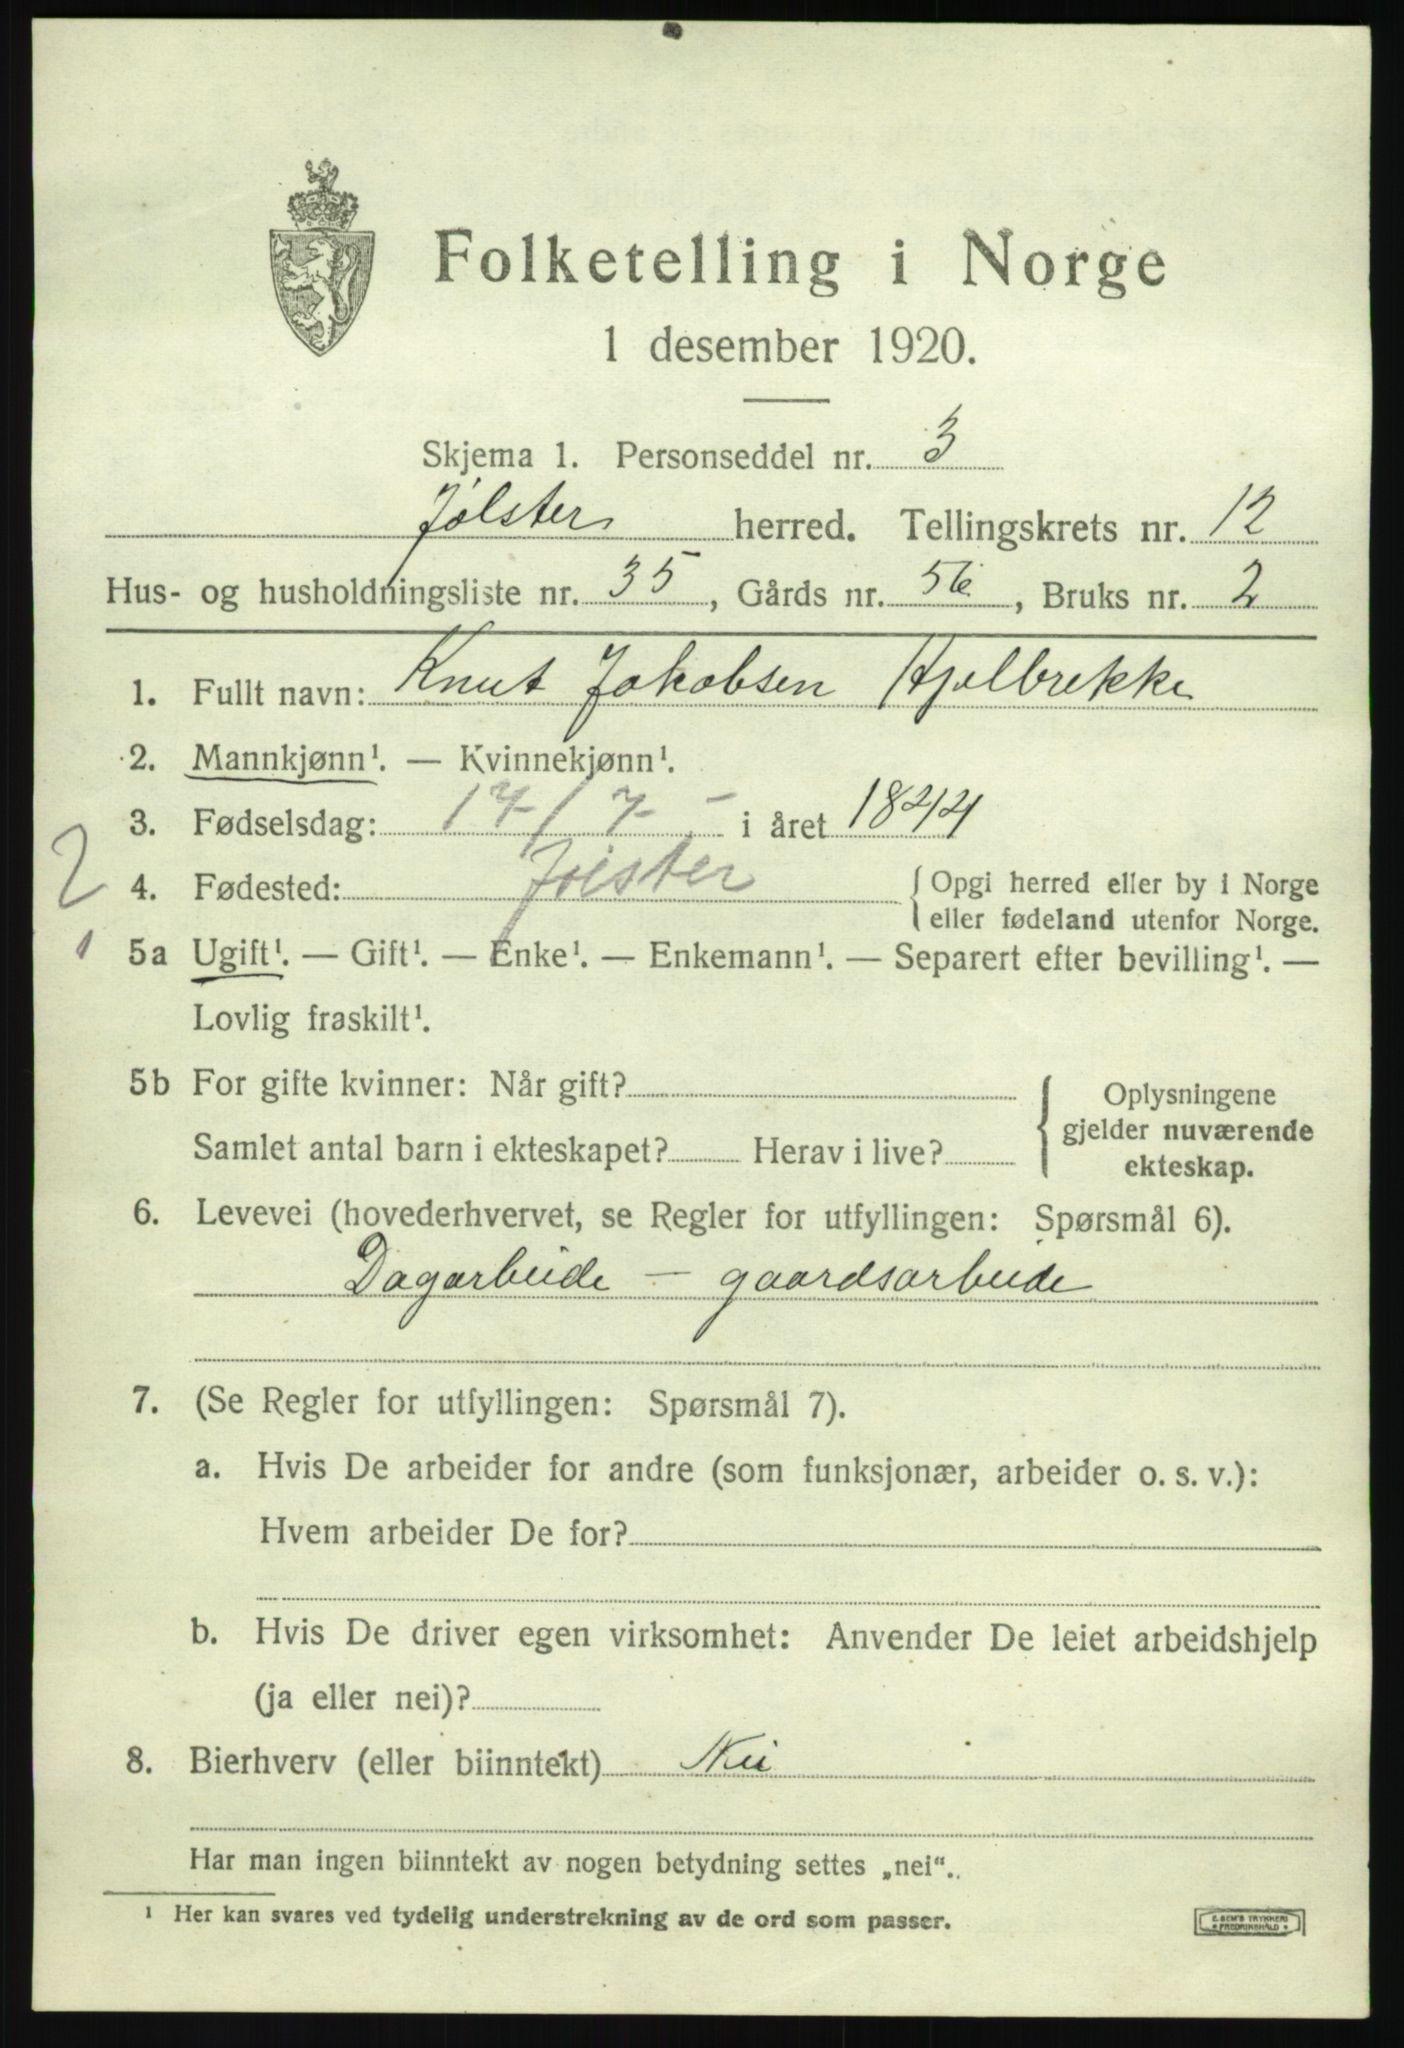 Folketelling i Norge
1 desember 1920.
Skjema 1. Personseddel nr. 3
Jølster herred. Tellingskrets nr. 12
Hus- og husholdningsliste nr. 35, Gårds nr. 56, Bruks nr. 2
1. Fullt navn: Knut Jakobsen Hjelbrekke
2. Mannkjønn¹. — Kvinnekjønn¹.
3. Fødselsdag: 17/7 - i året 1844
2
4. Fødested: Jølster { Opgi herred eller by i Norge
eller fødeland utenfor Norge.
1
5a Ugift¹. — Gift¹. — Enke¹. — Enkemann¹. — Separert efter bevilling¹. —
Lovlig fraskilt¹.
5b For gifte kvinner: Når gift?
Samlet antal barn i ekteskapet? Herav i live?
{ Oplysningene
gjelder nuværende
ekteskap.
6. Levevei (hovederhvervet, se Regler for utfyllingen: Spørsmål 6).
Dagarbeide — gaardsarbeide
7. (Se Regler for utfyllingen: Spørsmål 7).
a. Hvis De arbeider for andre (som funksjonær, arbeider o. s. v.):
Hvem arbeider De for?
b. Hvis De driver egen virksomhet: Anvender De leiet arbeidshjelp
(ja eller nei)?
8. Bierhverv (eller biinntekt) Nei
Har man ingen biinntekt av nogen betydning settes „nei“.
¹ Her kan svares ved tydelig understrekning av de ord som passer.
E. SEM'S TRYKKERI
FREDRIKSHALD